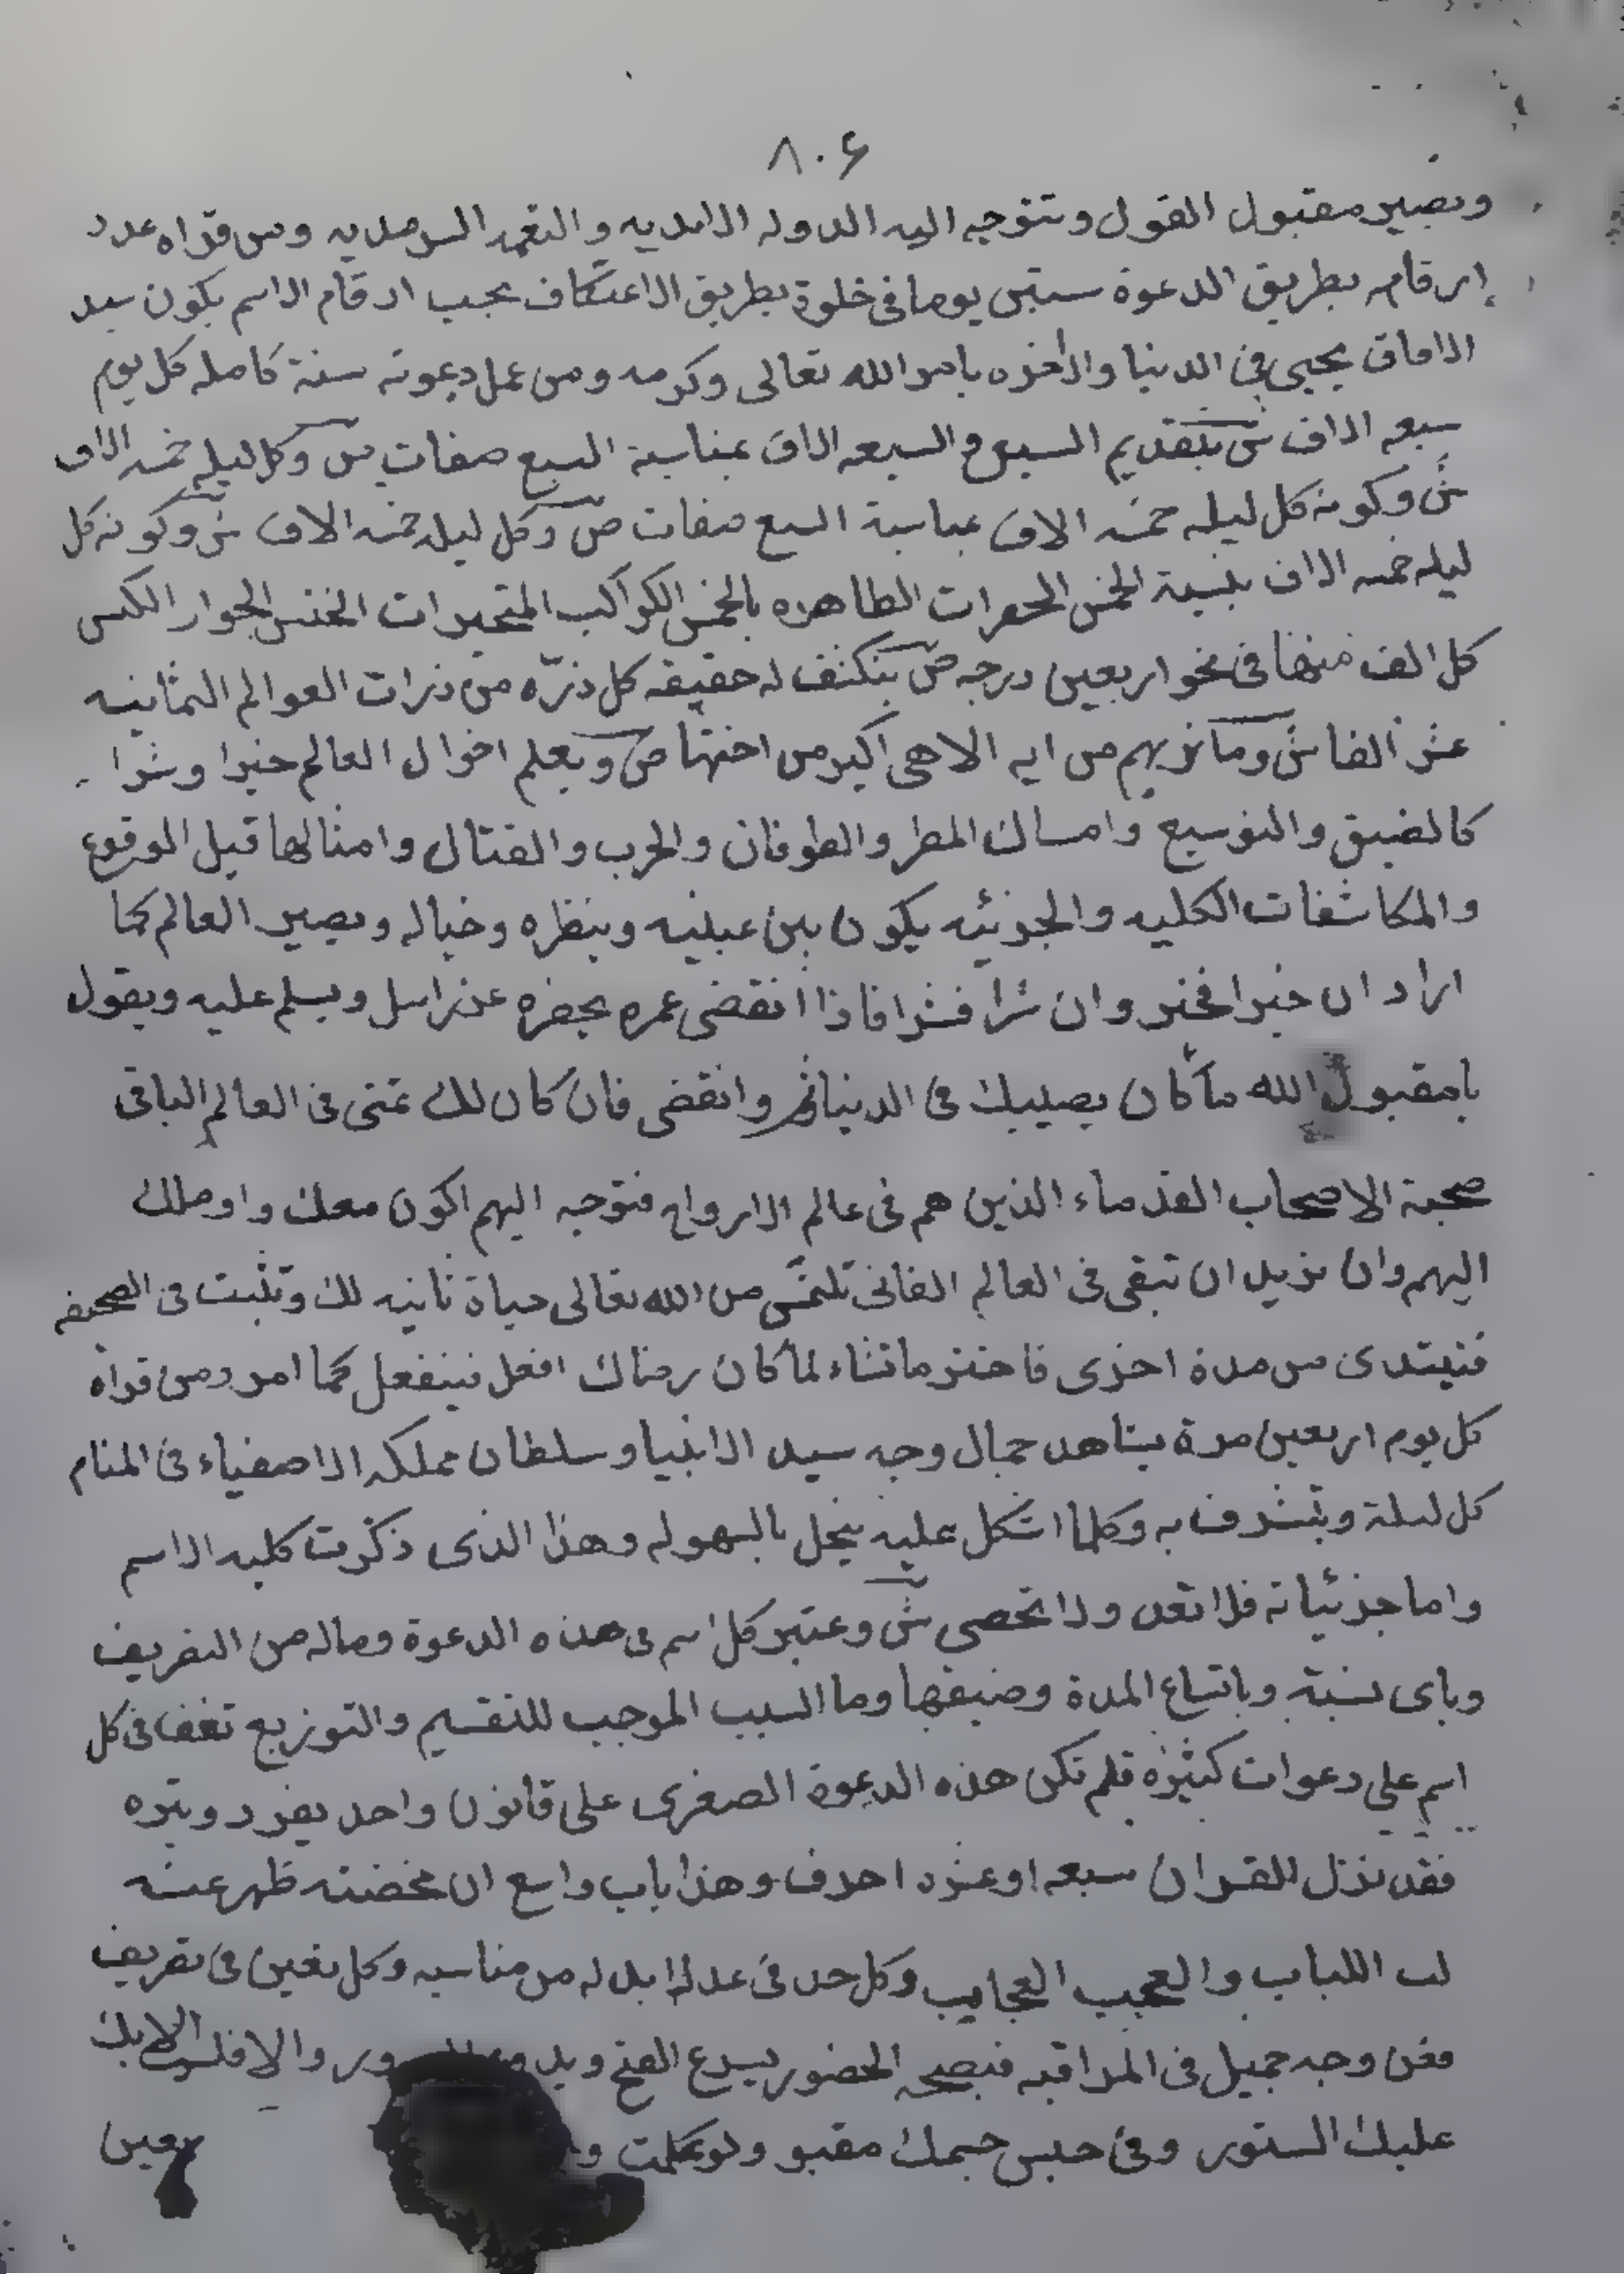 ٨٠۶
ويصير مقبول القول وتتوجه اليه الدوله الابديه والنعمه السرمديه ومن قراه عدد
ارقامه بطريق الدعوة ستين يوما فى خلوة بطريق الاعتكاف بحسب ارقام الاسم يكون سيد
الافاق يحيى فى الدنيا والاخره بامر الله تعالى وكرمه ومن عمل دعوته سنة كامله كل يوم
سبعه الاف ش بتقديم السين والسبعه الاف بمناسبة السبع صفات ص وكل ليله خمسه الاف
ش وكونه كل ليله خمسه الاف بمناسبة السبع صفات ص وكل ليله خمسه الاف ش وكونه كل
ليله خمسه الاف بنسبة الخمس الحضرات الطاهره بالخمس الكواكب المتحيرات الخنس الجوار الكنس
كل الف منها فى نحو اربعين درجه ص ينكشف له حقيقه كل ذرّه من ذرات العوالم الثمانيه
عشر الفا ش وما نريهم من ايه الا هى اكبر من اختها ص ويعلم احوال العالم خيرا وشرا
كالضيق والتوسيع وامساك المطر والطوفان والحرب والقتال وامثالها قبل الوقوع
والمكاشفات الكليه والجزئيه يكون بين عينيه وبنظره وخياله ويصير العالم كما
اراد ان خيرا فخير وان شرا فشرا فاذا انقضى عمره يحضره عزرائيل ويسلم عليه ويقول
يا مقبول الله ما كان يصيبك فى الدنيا تم وانقضى فان كان لك تمنى فى العالم الباقى
صحبة الاصحاب القدماء الذين هم فى عالم الارواح فتوجه اليهم اكون معك واوصلك
اليهم وان تريد ان تبقى فى العالم الفانى تلتمس من الله تعالى حياة ثانيه لك وتثبت فى الصحيفه
فتبتدى من مدة اخرى فاختر ما تشاء لما كان رضاك افعل فينفعل كما امر ومن قراه
كل يوم اربعين مرة يشاهد جمال وجه سيد الانبيا وسلطان مملكه الاصفياء فى المنام
كل ليلة ويتشرف به وكلما اشكل عليه ينحل بالسهوله وهذا الذى ذكرت كليه الاسم
واما جزئياته فلا تعد ولا تحصى ش وعتبر كل اسم فى هذه الدعوة وماله من التصريف
وباى نسبة وباتساع المدة وضيقها وما السبب الموجب للتقسيم والتوزيع تقف فى كل
اسم على دعوات كثيره فلم تكن هذه الدعوة الصغرى على قانون واحد بفرد وتيره
فقد نزل القران سبعه او عشره احرف وهذا باب واسع ان مخضته ظهر عنه
لب اللباب والعجب العجايب وكل حد فى عدد لا بد له من مناسبه وكل تعين فى تصريف
فعن وجه جميل فى المراقبه فبصحه الحضور يسرع الفتح والا
عليك الستور وفى حبس جسمك مقبو ولو عملت